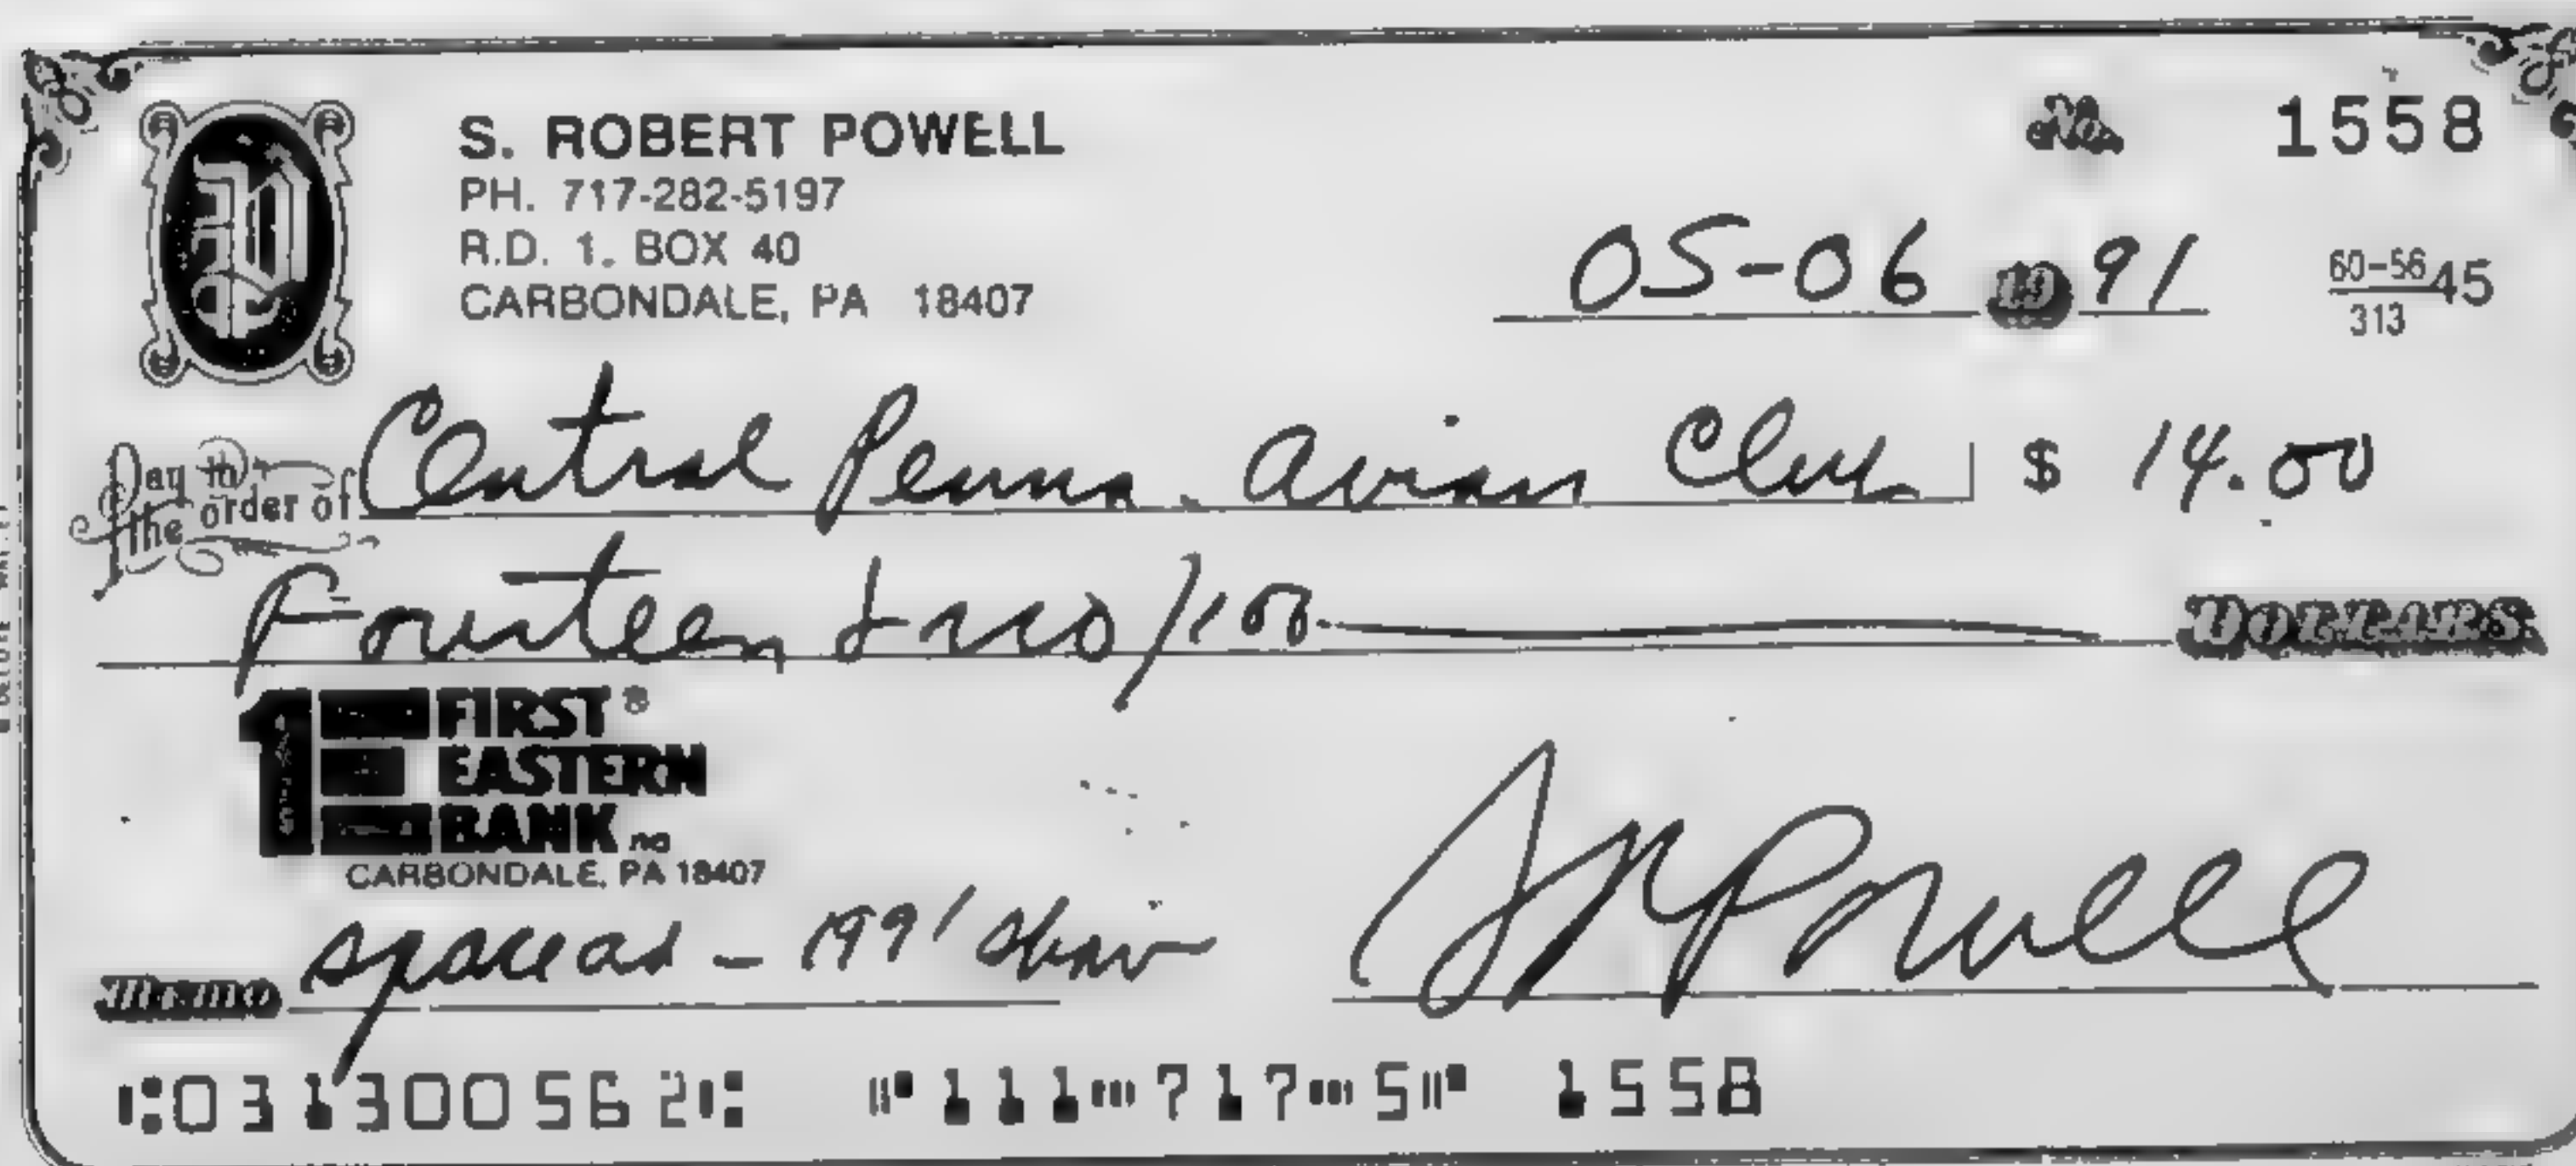 S. ROBERT POWELL
PH. 717-282-5197
R.D. 1. BOX 40
CARBONDALE, PA 18407
No. 1558
05-06 19 91
60-5645
313
Pay to the order of Central Penna. Avian Club $ 14.00
Fourteen & no/100 DOLLARS
1E FIRST® EASTERN BANK na
CARBONDALE, PA 18407
Memo space ad - 1991 show
SRPowell
⑆031300562⑆ ⑈111⑉717⑉5⑈ 1558